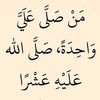 مَنْ صَلَّى عَلَيَّ
وَاحِدَةً، صَلَّى الله
عَلَيْهِ عَشْرًا